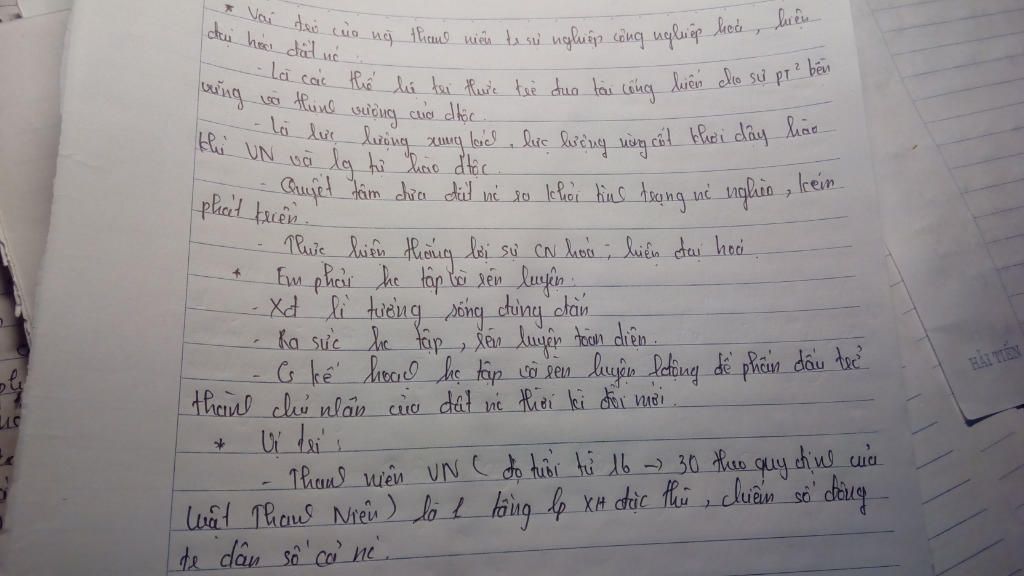 * Vai trò của ng thanh niên tr sự nghiệp công nghiệp hoá, hiện
đại hoá đất nc.
- Là các thế hệ tri thức trẻ đua tài cống hiến cho sự PT² bền
vững và thịnh vượng của dtộc.
- Là lực lượng xung kích, lực lượng nòng cốt khơi dậy hào
khí VN và lg tự hào dtộc.
- Quyết tâm đưa đất nc ra khỏi tình trạng nc nghèo, kém
phát triển.
- Thực hiện thắng lợi sự CN hoá, hiện đại hoá
* Em phải hc tập và rèn luyện:
- Xđ lí tưởng sống đúng đắn
- Ra sức hc tập, rèn luyện toàn diện.
- Có kế hoạch hc tập và rèn luyện lđộng để phấn đấu trở
thành chủ nhân của đất nc thời kì đổi mới.
* Vị trí:
- Thanh niên VN ( độ tuổi từ 16 → 30 theo quy định của
Luật Thanh Niên) là 1 tầng lp XH đặc thù, chiếm số đông
tr dân số cả nc.
HẢI TIẾN